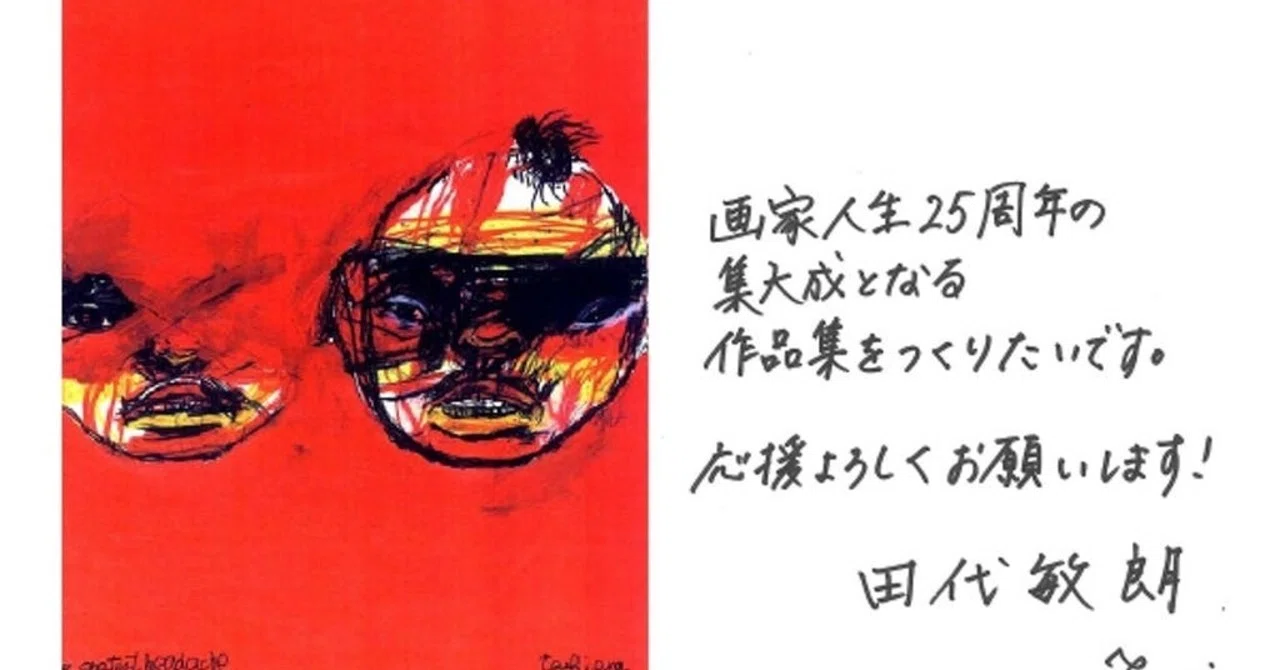 画家人生25周年の
集大成となる
作品集をつくりたいです。
応援よろしくお願いします!
田代敏朗
headache